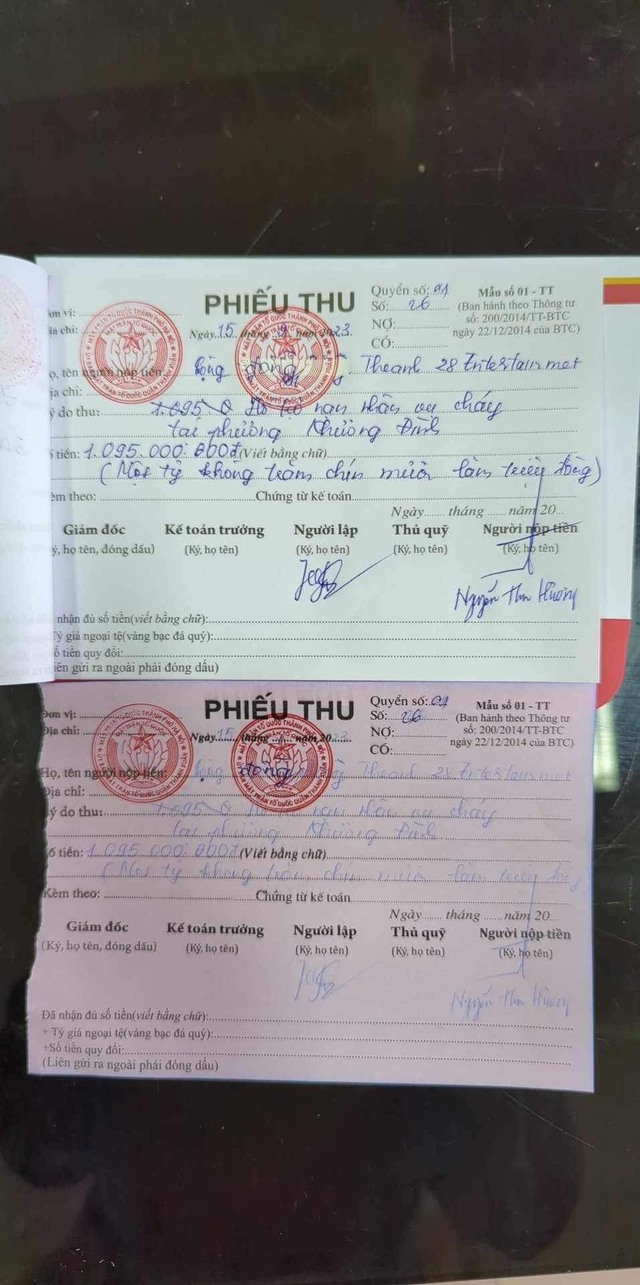 PHIẾU THU
Quyển số: 01
Số: 26
NỢ:
CÓ:
Mẫu số 01 - TT
(Ban hành theo Thông tư
số: 200/2014/TT-BTC
ngày 22/12/2014 của BTC)
Đơn vị:
Địa chỉ:
Ngày 15 tháng 9 năm 2023
Họ, tên người nộp tiền: cộng đồng Theanh 28 Entertainmet
Địa chỉ:
Lý do thu: 1.095 Hỗ trợ nạn nhân vụ cháy
tại phường Khương Đình
Số tiền: 1.095.000.000đ (Viết bằng chữ)
(Một tỷ không trăm chín mươi lăm triệu đồng)
Kèm theo: Chứng từ kế toán
Ngày tháng năm 20
Giám đốc Kế toán trưởng Người lập Thủ quỹ Người nộp tiền
ý, họ tên, đóng dấu) (Ký, họ tên) (Ký, họ tên) (Ký, họ tên) (Ký, họ tên)
Nguyễn Thu Hương
nhận đủ số tiền(viết bằng chữ):
Tỷ giá ngoại tệ(vàng bạc đá quý):
ố tiền quy đổi:
Liên gửi ra ngoài phải đóng dấu)
PHIẾU THU
Quyển số: 01
Số: 26
NỢ:
CÓ:
Mẫu số 01 - TT
(Ban hành theo Thông tư
số: 200/2014/TT-BTC
ngày 22/12/2014 của BTC)
Đơn vị:
Địa chỉ:
Ngày 15 tháng năm 20
Họ, tên người nộp tiền: cộng đồng Theanh 28 Entertainmet
Địa chỉ:
Lý do thu: 1.095 Hỗ trợ nạn nhân vụ cháy
tại phường Khương Đình
Số tiền: 1.095.000.000đ (Viết bằng chữ)
(Một tỷ không trăm chín mươi lăm triệu đồng
Kèm theo: Chứng từ kế toán
Ngày tháng năm 20
Giám đốc Kế toán trưởng Người lập Thủ quỹ Người nộp tiền
(Ký, họ tên, đóng dấu) (Ký, họ tên) (Ký, họ tên) (Ký, họ tên) (Ký, họ tên)
Nguyễn Thu Hương
Đã nhận đủ số tiền(viết bằng chữ):
+ Tỷ giá ngoại tệ(vàng bạc đá quý):
+Số tiền quy đổi:
(Liên gửi ra ngoài phải đóng dấu)